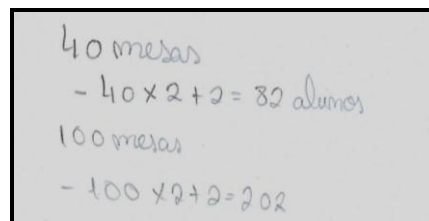 40 mesas
- 40 x 2 + 2 = 82 alunos
100 mesas
- 100 x 2 + 2 = 202